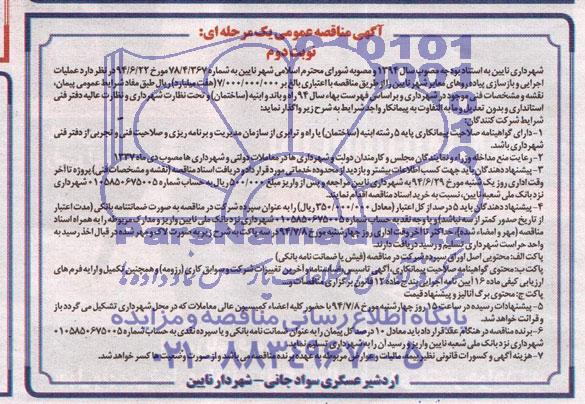 آگهی مناقصه عمومی یک مرحله ای:
نوبت دوم
شهرداری نایین به استناد بودجه مصوب سال ۱۳۹۴ و مصوبه شورای محترم اسلامی شهر نایین به شماره ۷۸/۴/۳۶۷ مورخ ۹۴/۶/۲۲ در نظر دارد عملیات
اجرایی و بازسازی پیاده روهای معابر شهر نایین را از طریق مناقصه با اعتباری بالغ بر ۷/۰۰۰/۰۰۰/۰۰۰ (هفت میلیارد) ریال طبق مفاد شرایط عمومی پیمان،
نقشه و مشخصات فنی موجود در شهرداری و بر اساس فهرست بهاء سال ۹۴ راه و باند و ابنیه (ساختمان) و تحت نظارت شهرداری و نظارت عالیه دفتر فنی
استانداری و بدون تعدیل و مابه التفاوت به پیمانکار واجد شرایط به شرح زیر واگذار نماید:
شرایط شرکت کنندگان:
۱- دارای گواهینامه صلاحیت پیمانکاری پایه ۵ رشته ابنیه (ساختمان) یا راه و ترابری از سازمان مدیریت و برنامه ریزی و صلاحیت فنی و تجربی از دفتر فنی
شهرداری باشد.
۲- رعایت منع مداخله وزراء و نمایندگان مجلس و کارمندان دولت و شهرداری ها در معاملات دولتی و شهرداری ها مصوب دی ماه ۱۳۳۷
۳- پیشنهاد دهندگان باید جهت کسب اطلاعات بیشتر و بازدید از محدوده خدماتی مورد قرارداد و دریافت اسناد مناقصه (نقشه و مشخصات فنی) پروژه تا آخر
وقت اداری روز یک شنبه مورخ ۹۴/۶/۲۹ به شهرداری نایین مراجعه و پس از واریز مبلغ ۵۰۰/۰۰۰ ریال به حساب شماره ۰۱۰۵۸۵۰۶۷۵۰۰۵ شهرداری
نزد بانک ملی شعبه نایین، نسبت به خرید اسناد مناقصه اقدام نمایند.
۴- پیشنهاد دهندگان باید ۵ درصد از کل اعتبار (معادل ۳۵۰/۰۰۰/۰۰۰ ریال) را به عنوان سپرده شرکت در مناقصه به صورت ضمانتنامه بانکی (مدت اعتبار
از تاریخ صدور کمتر از سه ماه نباشد) و یا وجه نقد به حساب شماره ۰۱۰۵۸۵۰۶۷۵۰۰۵ شهرداری نزد بانک ملی نایین واریز و مدارک مربوطه را به همراه اسناد
مناقصه (مهر و امضاء شده)، حداکثر تا آخر وقت اداری روز چهارشنبه مورخ ۹۴/۷/۸ در سه پاکت به شرح زیر به صورت لاک و مهر شده در قبال اخذ رسید به
واحد حراست شهرداری تسلیم و رسید دریافت دارند.
پاکت الف: محتویی اصل اوراق سپرده شرکت در مناقصه (فیش یا ضمانت نامه بانکی)
پاکت ب: محتوی گواهینامه صلاحیت پیمانکاری، آگهی تاسیس، اساسنامه و آخرین تغییرات شرکت و سوابق کاری (رزومه) و همچنین تکمیل و ارایه فرم های
ارزیابی کیفی ماده ۱۶ آیین نامه اجرایی بند ج ماده ۱۲ قانون برگزاری مناقصات
پاکت ج: محتوی برگ آنالیز و پیشنهاد قیمت
۵- پیشنهادات رسیده در ساعت روز چهارشنبه مورخ ۹۴/۷/۸ با حضور کلیه اعضاء کمیسیون عالی معاملات که در محل شهرداری تشکیل می گردد باز
و قرائت خواهد شد.
۶- برنده مناقصه در هنگام عقد قرارداد باید معادل ۱۰ درصد کل پیمان را به عنوان ضمانت نامه بانکی و یا سپرده نقدی به حساب شماره ۰۱۰۵۸۵۰۶۷۵۰۰۵
شهرداری نزد بانک ملی شعبه نایین واریز و رسید آن را به شهرداری تسلیم نماید.
۷- هزینه آگهی و کسورات قانونی نظیر بیمه، مالیات و عوارض مربوطه به عهده برنده مناقصه می باشد و از صورت وضعیت ها کسر خواهد شد.
اردشیر عسگری سواد جانی - شهردار نایین
ParsNamadData
پایگاه اطلاع رسانی مناقصه و مزایده
۰۲۱-۸۸۳۴۹۶۷۰-۵